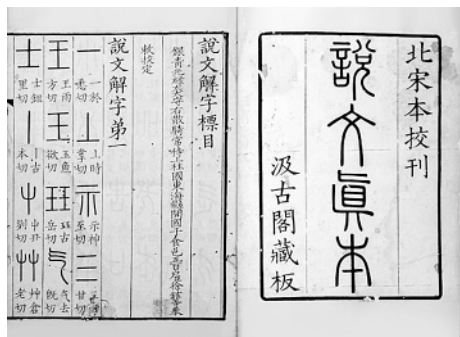 北宋本挍刊
說文眞本
汲古閣藏板
說文解字標目
銀青光祿大夫守右散騎常侍上柱國東海縣開國子食邑五百戶徐鉉等奉
敕挍定
說文解字第一
一 一於悉切 丄 上時掌切 示 示神至切 三 甘切
王 王雨方切 玉 玉魚欲切 玨 玨古岳切 气 气去旣切
士 士鉏里切 丨 丨古本切 屮 屮丑列切 艸 艸倉老切